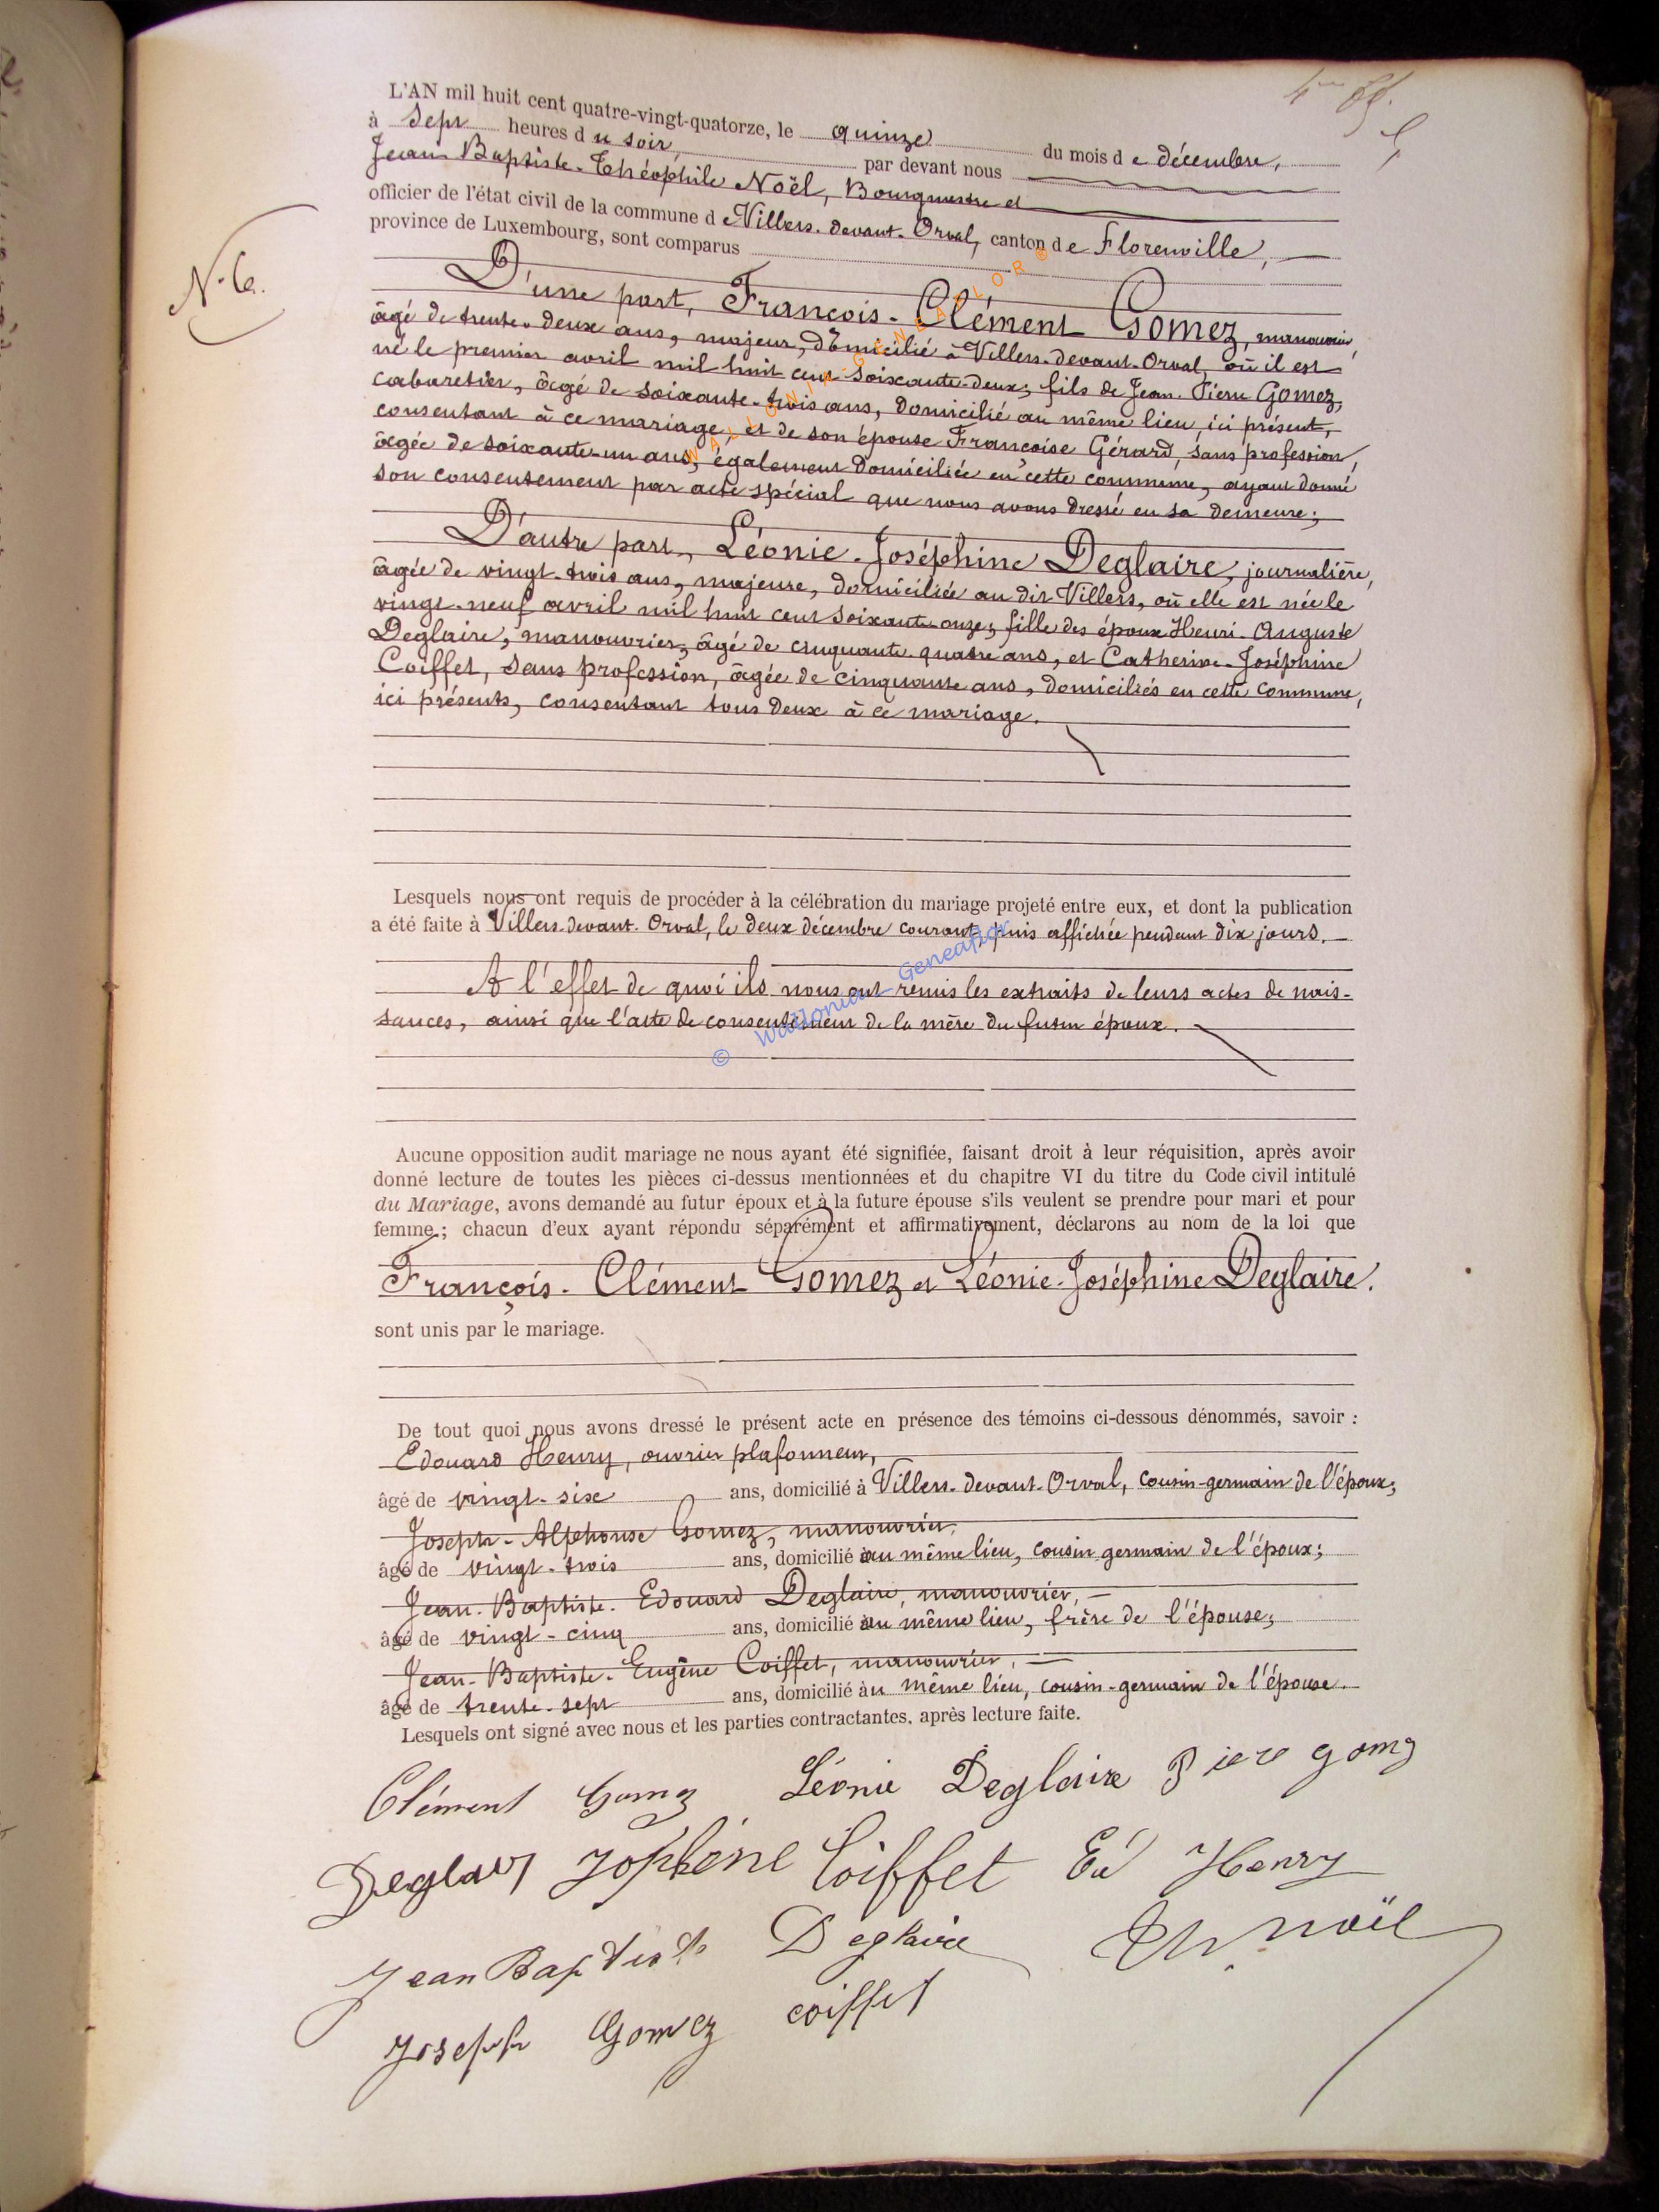 L'AN mil huit cent quatre-vingt-quatorze, le quinze du mois de décembre,
à Sept heures du soir, par devant nous
Jean-Baptiste-Théophile Noël, Bourgmestre et
officier de l'état civil de la commune de Villers-devant-Orval, canton de Florenville,
province de Luxembourg, sont comparus
N.6.
D'une part, François-Clément Gomez, manouvrier,
âgé de trente-deux ans, majeur, domicilié à Villers-devant-Orval, où il est
né le premier avril mil huit cent soixante-deux, fils de Jean-Pierre Gomez,
cabaretier, âgé de soixante-trois ans, domicilié au même lieu, ici présent,
consentant à ce mariage, et de son épouse Françoise Gérard, sans profession,
âgée de soixante-un ans, également domiciliée en cette commune, ayant donné
son consentement par acte spécial que nous avons dressé en sa demeure;
D'autre part, Léonie-Joséphine Deglaire, journalière,
âgée de vingt-trois ans, majeure, domiciliée au dit Villers, où elle est née le
vingt-neuf avril mil huit cent soixante-onze, fille des époux Henri-Auguste
Deglaire, manouvrier, âgé de cinquante-quatre ans, et Catherine-Joséphine
Coiffet, sans profession, âgée de cinquante ans, domiciliés en cette commune,
ici présents, consentant tous deux à ce mariage.
Lesquels nous ont requis de procéder à la célébration du mariage projeté entre eux, et dont la publication
a été faite à Villers-devant-Orval, le deux décembre courant, puis affichée pendant dix jours.
A l'effet de quoi ils nous ont remis les extraits de leurs actes de nais-
sances, ainsi que l'acte de consentement de la mère du futur époux.
© Wallonia Geneaflor
WALLONIA GENEAFLOR ®
Aucune opposition audit mariage ne nous ayant été signifiée, faisant droit à leur réquisition, après avoir
donné lecture de toutes les pièces ci-dessus mentionnées et du chapitre VI du titre du Code civil intitulé
du Mariage, avons demandé au futur époux et à la future épouse s'ils veulent se prendre pour mari et pour
femme ; chacun d'eux ayant répondu séparément et affirmativement, déclarons au nom de la loi que
François-Clément Gomez et Léonie-Joséphine Deglaire.
sont unis par le mariage.
De tout quoi nous avons dressé le présent acte en présence des témoins ci-dessous dénommés, savoir :
Edouard Henry, ouvrier plafonneur,
âgé de vingt-six ans, domicilié à Villers-devant-Orval, cousin-germain de l'époux;
Joseph-Alphonse Gomez, manouvrier,
âgé de vingt-trois ans, domicilié au même lieu, cousin germain de l'époux;
Jean-Baptiste-Edouard Deglaire, manouvrier,
âgé de vingt-cinq ans, domicilié au même lieu, frère de l'épouse;
Jean-Baptiste-Eugène Coiffet, manouvrier,
âgé de trente-sept ans, domicilié au même lieu, cousin-germain de l'épouse.
Lesquels ont signé avec nous et les parties contractantes, après lecture faite.
Clément Gomez Léonie Deglaire Piere gomez
Jophéne Coiffet Ed Henry
Jean Baptiste Deglaire Th. Noël
Joseph Gomez coiffet